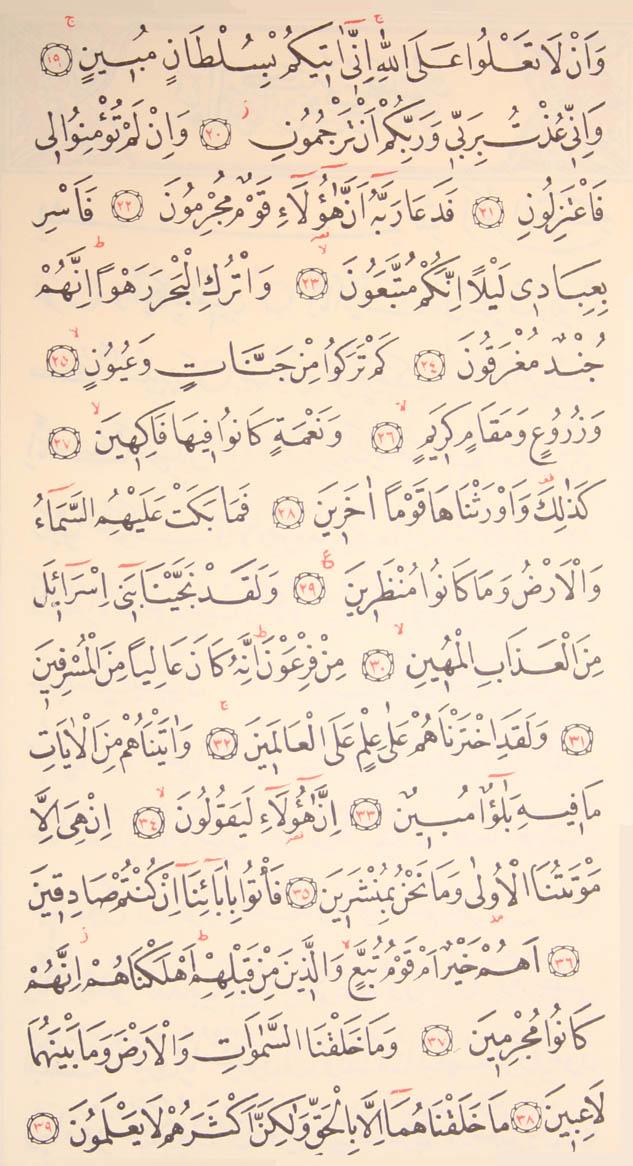 وَاَنْ لَا تَعْلُوا عَلَى اللّٰهِ اِنّٖٓى اٰتٖيكُمْ بِسُلْطَانٍ مُبٖينٍ ﴿١٩﴾
وَاِنّٖى عُذْتُ بِرَبّٖى وَرَبِّكُمْ اَنْ تَرْجُمُونِ ﴿٢٠﴾ وَاِنْ لَمْ تُؤْمِنُوا لٖى
فَاعْتَزِلُونِ ﴿٢١﴾ فَدَعَا رَبَّهُٓ اَنَّ هٰٓؤُ۬لَٓاءِ قَوْمٌ مُجْرِمُونَ ﴿٢٢﴾ فَاَسْرِ
بِعِبَادٖى لَيْلًا اِنَّكُمْ مُتَّبَعُونَ ﴿٢٣﴾ وَاتْرُكِ الْبَحْرَ رَهْوًا اِنَّهُمْ
جُنْدٌ مُغْرَقُونَ ﴿٢٤﴾ كَمْ تَرَكُوا مِنْ جَنَّاتٍ وَعُيُونٍ ﴿٢٥﴾
وَزُرُوعٍ وَمَقَامٍ كَرٖيمٍ ﴿٢٦﴾ وَنَعْمَةٍ كَانُوا فٖيهَا فَاكِهٖينَ ﴿٢٧﴾
كَذٰلِكَ وَاَوْرَثْنَاهَا قَوْمًا اٰخَرٖينَ ﴿٢٨﴾ فَمَا بَكَتْ عَلَيْهِمُ السَّمَٓاءُ
وَالْاَرْضُ وَمَا كَانُوا مُنْظَرٖينَ ﴿٢٩﴾ وَلَقَدْ نَجَّيْنَا بَنٖٓى اِسْرَٓائٖلَ
مِنَ الْعَذَابِ الْمُهٖينِ ﴿٣٠﴾ مِنْ فِرْعَوْنَ اِنَّهُ كَانَ عَالِيًا مِنَ الْمُسْرِفٖينَ
﴿٣١﴾ وَلَقَدِ اخْتَرْنَاهُمْ عَلٰى عِلْمٍ عَلَى الْعَالَمٖينَ ﴿٣٢﴾ وَاٰتَيْنَاهُمْ مِنَ الْاٰيَاتِ
مَا فٖيهِ بَلٰٓؤٌا مُبٖينٌ ﴿٣٣﴾ اِنَّ هٰٓؤُ۬لَٓاءِ لَيَقُولُونَ ﴿٣٤﴾ اِنْ هِىَ اِلَّا
مَوْتَتُنَا الْاُولٰى وَمَا نَحْنُ بِمُنْشَرٖينَ ﴿٣٥﴾ فَأْتُوا بِاٰبَٓائِنَٓا اِنْ كُنْتُمْ صَادِقٖينَ
﴿٣٦﴾ اَهُمْ خَيْرٌ اَمْ قَوْمُ تُبَّعٍ وَالَّذٖينَ مِنْ قَبْلِهِمْ اَهْلَكْنَاهُمْ اِنَّهُمْ
كَانُوا مُجْرِمٖينَ ﴿٣٧﴾ وَمَا خَلَقْنَا السَّمٰوَاتِ وَالْاَرْضَ وَمَا بَيْنَهُمَا
لَاعِبٖينَ ﴿٣٨﴾ مَا خَلَقْنَاهُمَٓا اِلَّا بِالْحَقِّ وَلٰكِنَّ اَكْثَرَهُمْ لَا يَعْلَمُونَ ﴿٣٩﴾